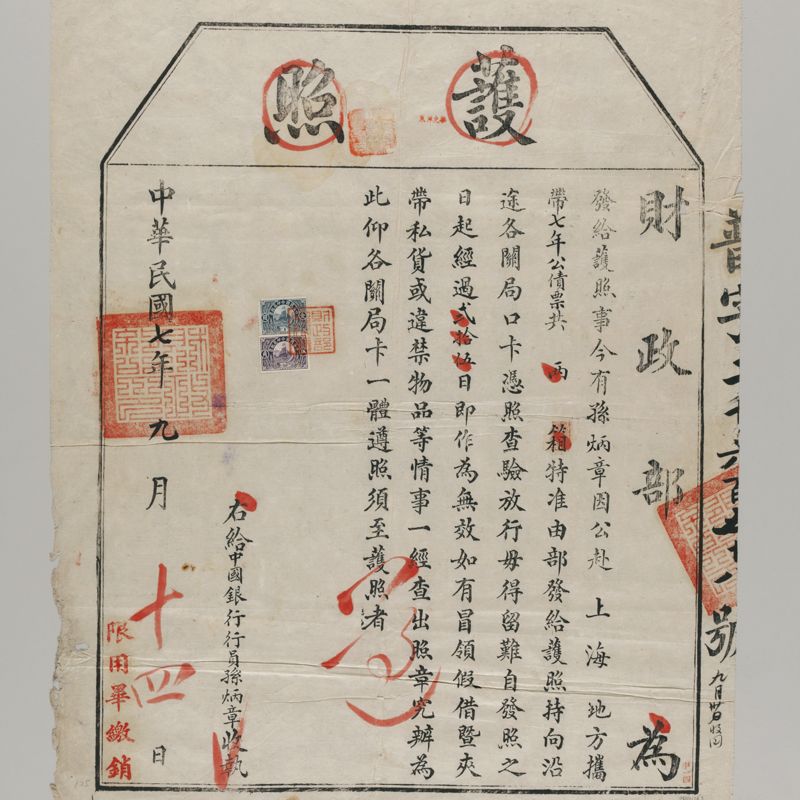 護照
財政部為
發給護照事今有孫炳章因公赴上海地方攜
帶七年公債票共兩箱特准由部發給護照持向沿
途各關局口卡憑照查驗放行毋得留難自發照之
日起經過貳拾伍日即作為無效如有冒領假借暨夾
帶私貨或違禁物品等情事一經查出照章究辦為
此仰各關局卡一體遵照須至護照者
右給中國銀行行員孫炳章收執
中華民國七年九月十四日
限用畢繳銷